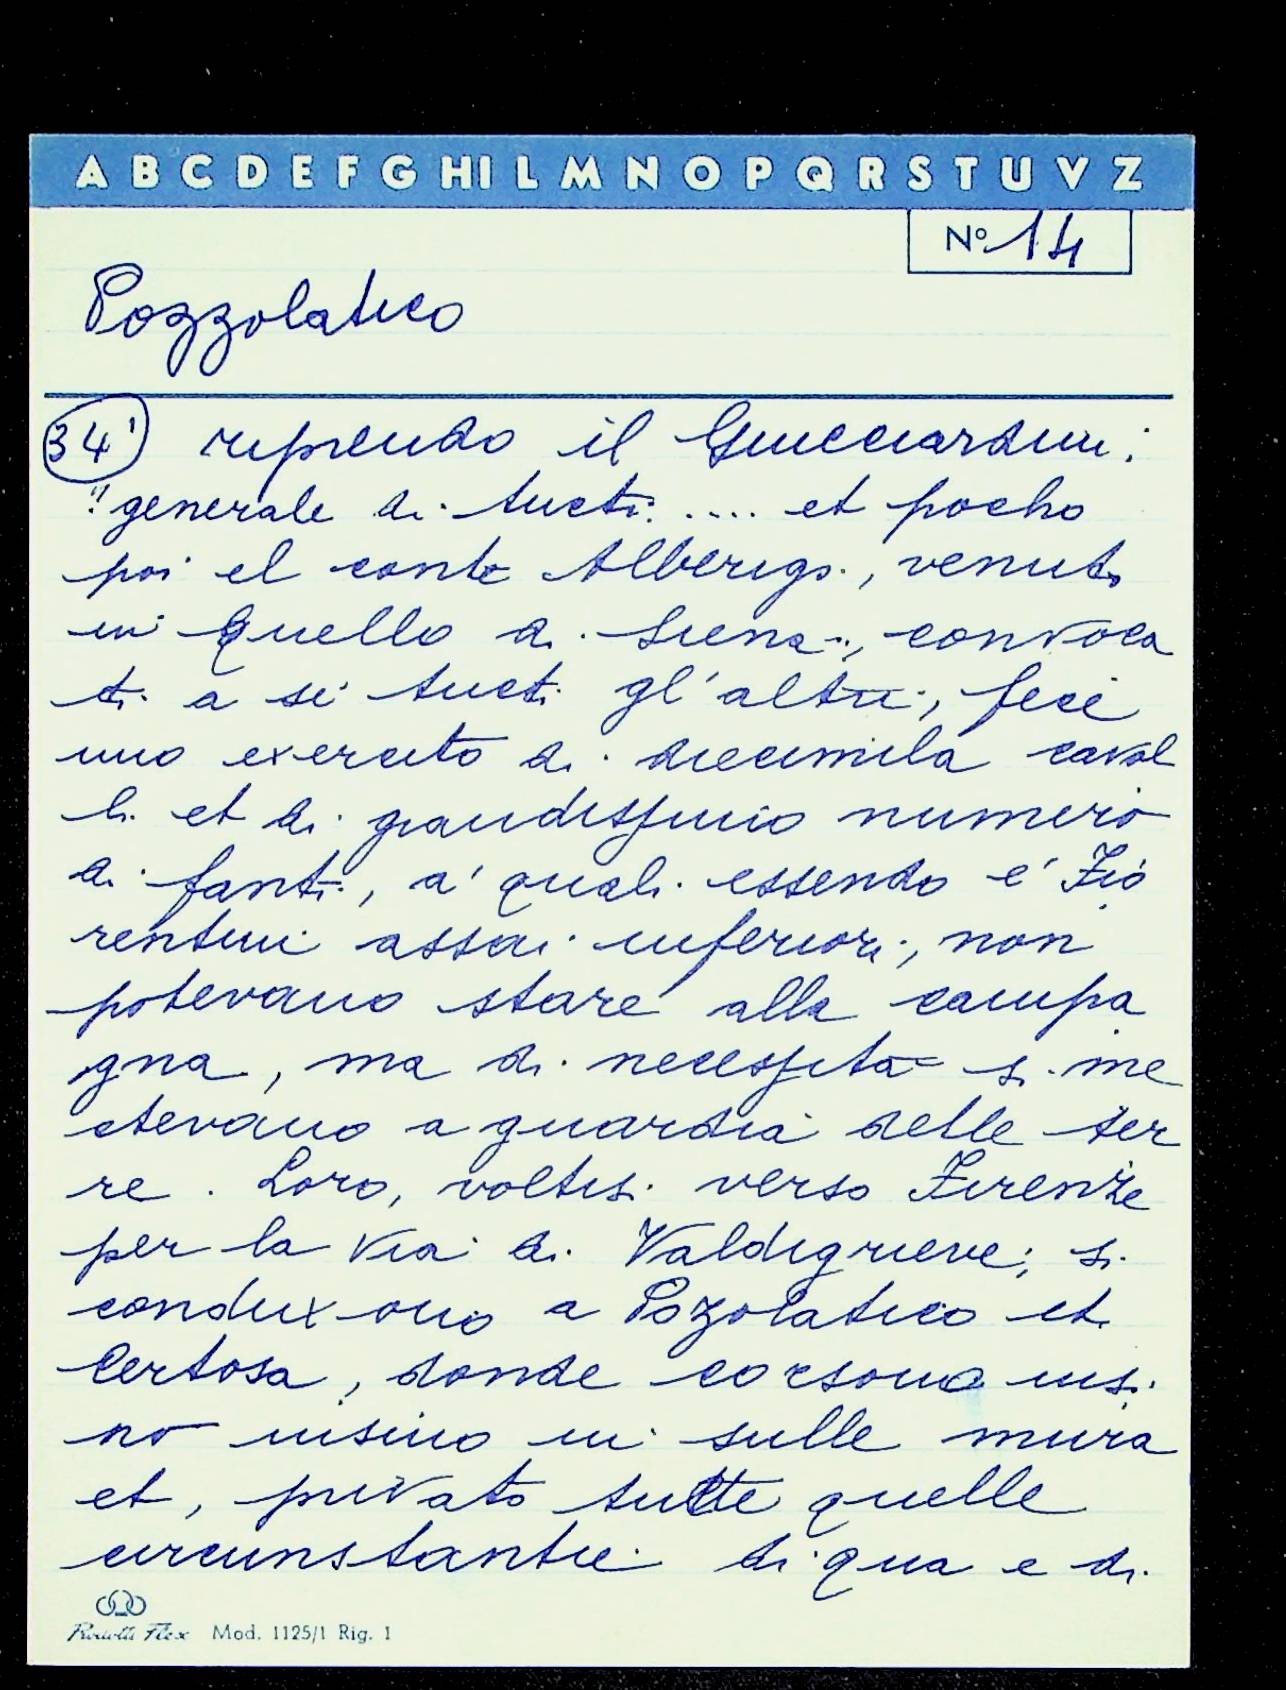 A B C D E F G H I L M N O P Q R S T U V Z
Nº 14
Pozzolatico
34' riprendo il Guicciardini:
"generale di tucti .... et pocho
poi el conte Alberigo, venuto
in quello di Siena, convoca
ti a sé tucti gl'altri, fece
uno exercito di diecimila caval
li et di grandissimo numero
di fanti, a' quali essendo e' Fio
rentini assai inferiori, non
potevano stare alla campa
gna, ma di necessità si me
ctevano a guardia delle ter
re. Loro, voltisi verso Firenze
per la via di Valdigrieve, si
conduxono a Pozolatico et
Certosa, donde corsono insi
no insino in sulle mura
et, privato tutte quelle
circunstantie di qua e di
Mod. 1125/1 Rig. 1